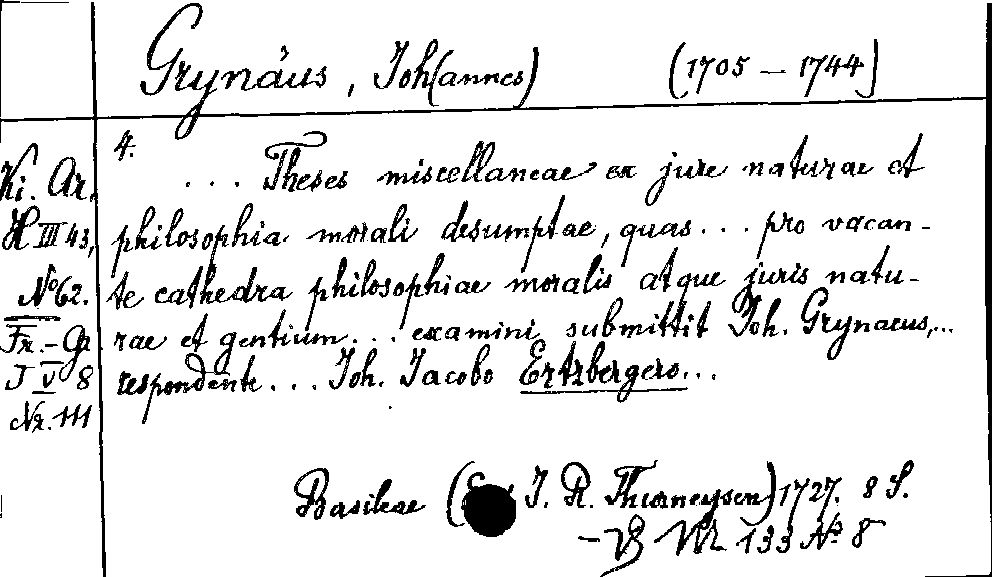 Grynäus, Joh(annes) (1705 – 1744)
4.
... Theses miscellaneae ex jure naturae et
philosophia morali desumptae, quas... pro vacan-
te cathedra philosophiae moralis atque juris natu-
rae et gentium... examini submittit Joh. Grynaeus,...
respondente... Joh. Jacobo Ertzbergero...
Ki. Ar.
H III 43,
No 62.
Fr.-Gr.
J V 8
Nr. 111
Basileae ( J. R. Thurneysen) 1727. 8 S.
133 No 8